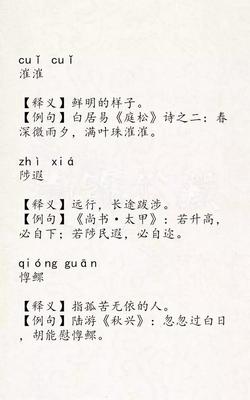 cuǐ cuǐ
漼漼
【释义】鲜明的样子。
【例句】白居易《庭松》诗之二：春
深微雨夕，满叶珠漼漼。
zhì xiá
陟遐
【释义】远行，长途跋涉。
【例句】《尚书·太甲》：若升高，
必自下；若陟民遐，必自迩。
qióng guān
惸鳏
【释义】指孤苦无依的人。
【例句】陆游《秋兴》：忽忽过白日
，胡能慰惸鳏。